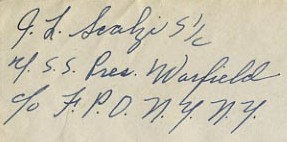 J. L. Scalzi S 1/c
U.S.S. Pres. Warfield
c/o F.P.O. N.Y. N.Y.